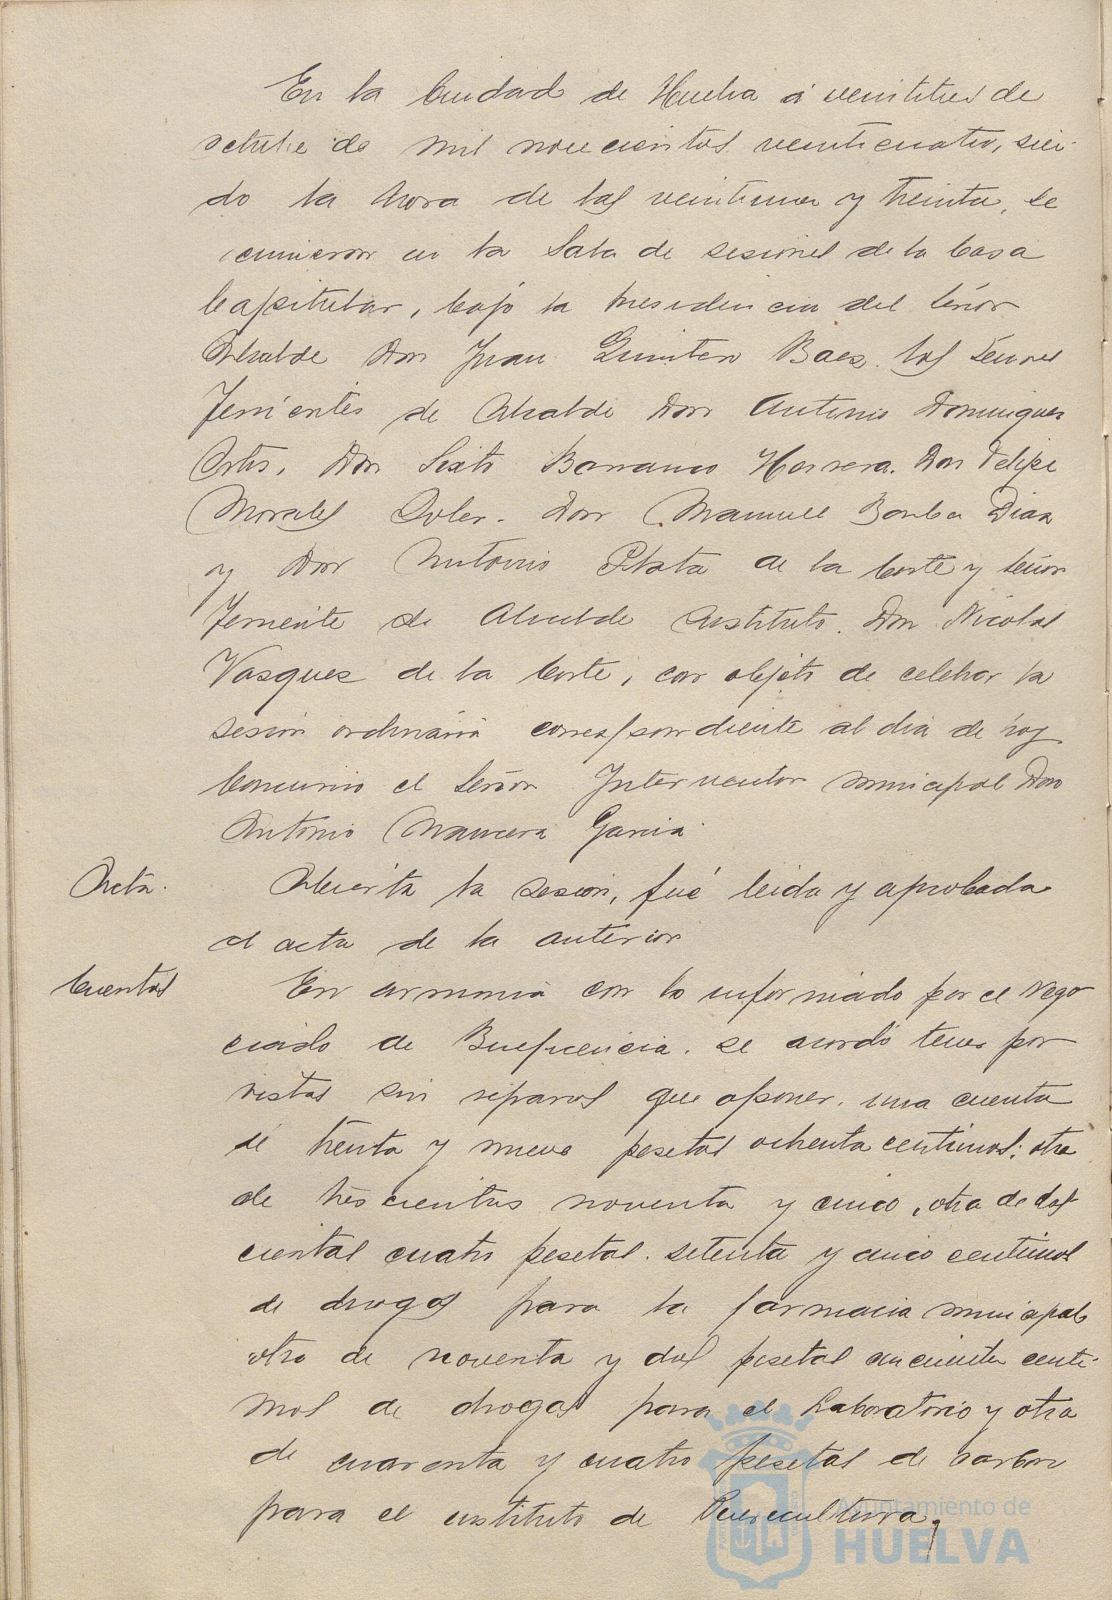 En la Ciudad de Huelva á veintitres de
octubre de mil novecientos veinticuatro, sien-
do la hora de las veintiuna y treinta, se
reunieron en la Sala de sesiones de la Casa
Capitular, bajo la presidencia del Señor
Alcalde Don Juan Quintero Baez. los Señores
Tenientes de Alcalde Don Antonio Dominguez
Ortis, Don Sixto Barranco Herrera. Don Felipe
Morales Soler. Don Manuel Borba Diaz
y Don Antonio Plata de la Corte y Señor
Teniente de Alcalde Sustituto. Don Nicolas
Vasquez de la Corte, con objeto de celebrar la
sesion ordinaria correspondiente al dia de hoy
Concurrio el Señor Interventor municipal Don
Antonio Mancera Garcia.
Acta. Abierta la sesion, fué leida y aprobada
el acta de la anterior
Cuentas En armonia con lo informado por el Nego-
ciado de Beneficencia. se acordó tener por
vistas sin reparos que oponer. una cuenta
de treinta y nueve pesetas ochenta centimos; otra
de trescientas noventa y cinco, otra de dos
cientas cuatro pesetas. setenta y cinco centimos
de drogas para la farmacia municipal
otra de noventa y dos pesetas cincuenta centi-
mos de drogas para el Laboratorio y otra
de cuarenta y cuatro pesetas de carbon
para el instituto de Puericultura.
Ayuntamiento de
HUELVA